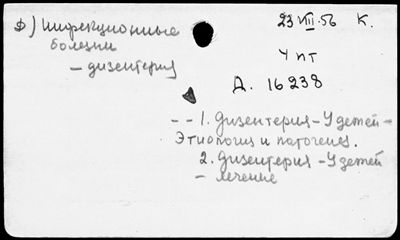 Ф) Инфекционные
болезни
– дизентерия
23 VIII.56 К.
Ч пт
Д. 16238
– – 1. Дизентерия – У детей –
Этиология и патогенез.
2. Дизентерия – У детей
– лечение